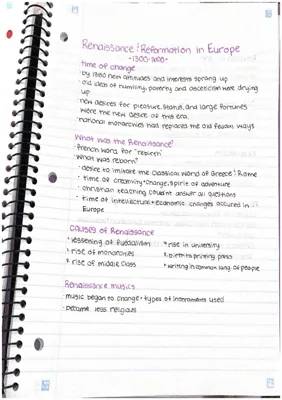 Renaissance & Reformation in Europe
time of change
• by 1350 new attitudes and interests sprang up
• old ideas of humility, poverty and asceticism were drying
up
• new desires for pleasure, status, and large fortunes
were the new desire of this era.
• national monarchies had replaced the old feudal ways
What was the Renaissance?
• French word for "rebirth"
• What was reborn?
• desire to imitate the classical world of Greece & Rome
• time of creativity, change, spirit of adventure
• christian teaching couldnt answer all questions
• time of intellectual + economic changes occured in
Europe
causes of Renaissance
• lessening of feudalism
• rise of monarchies
• rise of middle class
• rise in university
• birth to printing press
• writing in common lang. of people
Renaissance musics
• music began to change + types of instruments used
• became less religious